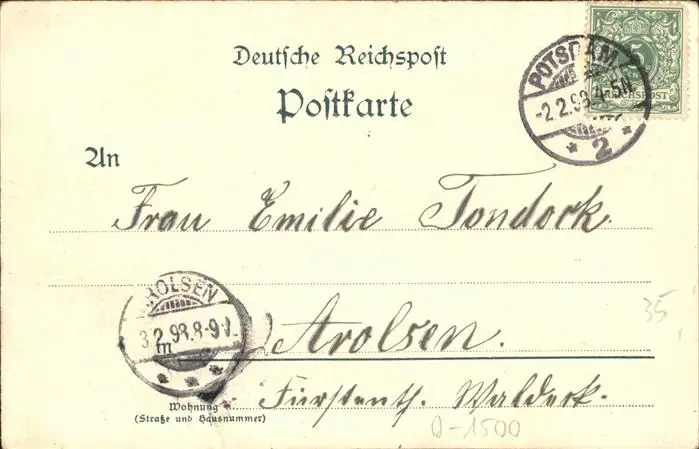 Deutsche Reichspost
Postkarte
5
REICHSPOST
POTSDAM
-2.2.98.4-5N.
* 2 *
An
Frau Emilie Tondock.
AROLSEN
3.2.98.8-9V.
in
Arolsen.
35
Fürstenth. Waldeck.
Wohnung
(Straße und Hausnummer)
D-1500